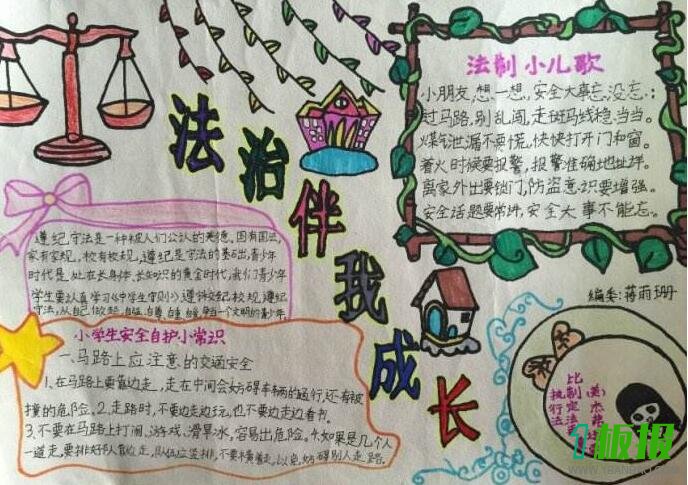 法治伴我成长
法制小儿歌
小朋友,想一想,安全大事忘没忘:
过马路,别乱闯,走斑马线稳当当。
煤气泄漏不要慌,快快打开门和窗。
着火时候要报警,报警准确地址详。
离家外出要锁门,防盗意识要增强。
安全话题要常讲,安全大事不能忘。
编委:蒋雨珊
遵纪守法是一种被人们公认的美德。国有国法,
家有家规,校有校规,遵纪是守法的基础,青少年
时代是处在长身体、长知识的黄金时代,我们青少年
学生要认真学习《中学生守则》,遵守校纪校规,遵纪
守法,从自己做起,自强、自尊、自重、做一个文明的青少年。
小学生安全自护小常识
一、马路上应注意的交通安全
1、在马路上要靠边走,走在中间会妨碍车辆的通行,还有被
撞的危险。2.走路时,不要边走边玩,也不要边走边看书。
3.不要在马路上打闹、游戏、滑旱冰,容易出危险。4.如果是几个人
一道走,要排好队靠边走,队伍应竖排,不要横着走,以免妨碍别人走路。
执行法
比制定法
(美)杰
1板报
WWW.1BANBAO.COM